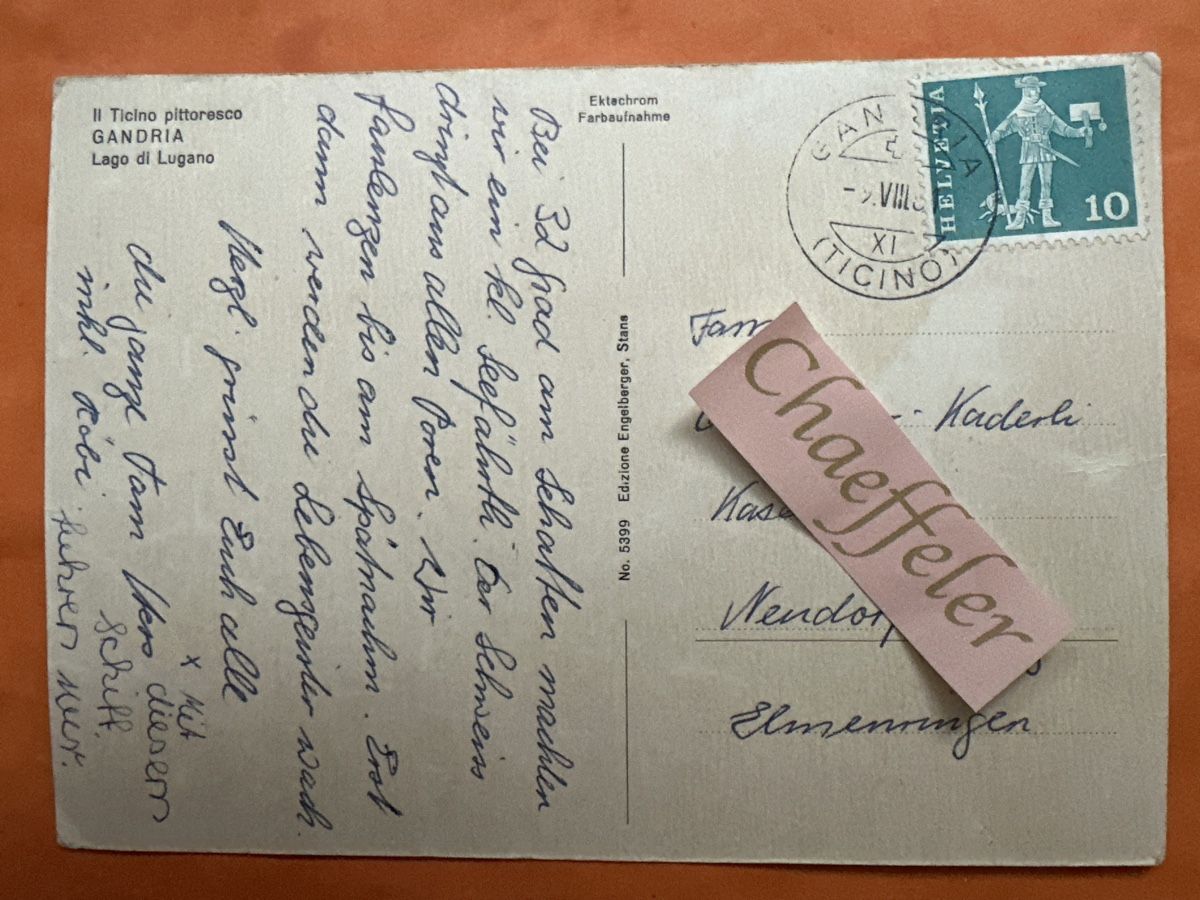 Il Ticino pittoresco
GANDRIA
Lago di Lugano
Ektachrom
Farbaufnahme
No. 5399 Edizione Engelberger, Stans
HELVETIA
10
GANDRIA
VIII
XI
(TICINO)
Bei 32 Grad am Schatten machten
wir ein kl. Seefährtli. Der Schweiss
dringt aus allen Poren. Wir
faulenzen bis am Spätnachm. Erst
dann werden die Lebensgeister wach.
Herzl. grüsst Euch alle
die ganze Fam
inkl. Röbi
x Mit
diesem
Schiff
fuhren wir.
Fam
Kaderli
Kase
Neudorf
Elmenringen
Chaeffeler